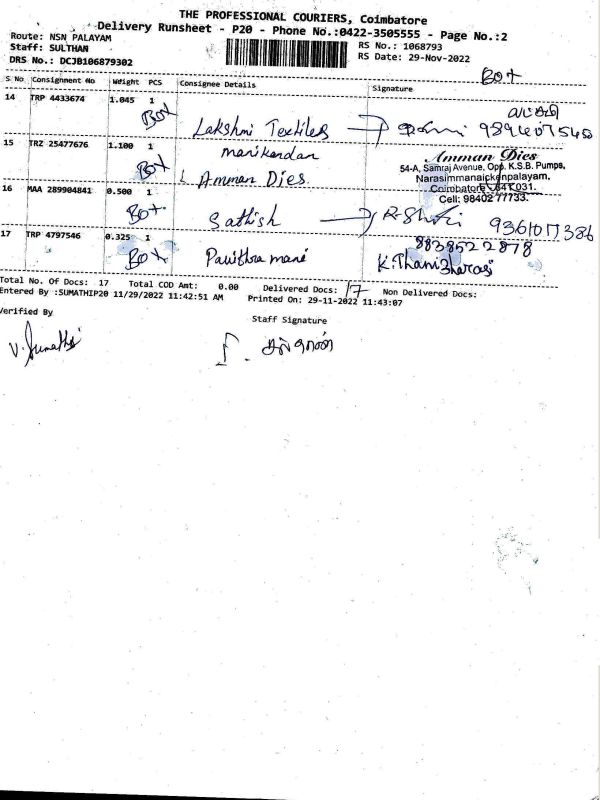 THE PROFESSIONAL COURIERS, Coimbatore
Delivery Runsheet - P20 - Phone No.:0422-3505555 - Page No.:2
Route: NSN PALAYAM
Staff: SULTHAN
DRS No.: DCJB106879302
RS No.: 1068793
RS Date: 29-Nov-2022
Box
S No Consignment No Weight PCS Consignee Details Signature
14 TRP 4433674 1.045 1
Box Lakshmi Textiles
15 TRZ 25477676 1.100 1 manikandan
Box Amman Dies
Amman Dies
54-A, Samraj Avenue, Opp. K.S.B. Pumps,
Narasimmanaickenpalayam,
Coimbatore - 641 031.
Cell: 98402 77733.
16 MAA 289904841 0.500 1
Box Sathish 9361017386
17 TRP 4797546 0.325 1 9838522878
Box Pavithra mani K.Thamizharasi
Total No. Of Docs: 17 Total COD Amt: 0.00 Delivered Docs: 17 Non Delivered Docs:
Entered By :SUMATHIP20 11/29/2022 11:42:51 AM Printed On: 29-11-2022 11:43:07
Verified By
Staff Signature
V. Sumathi